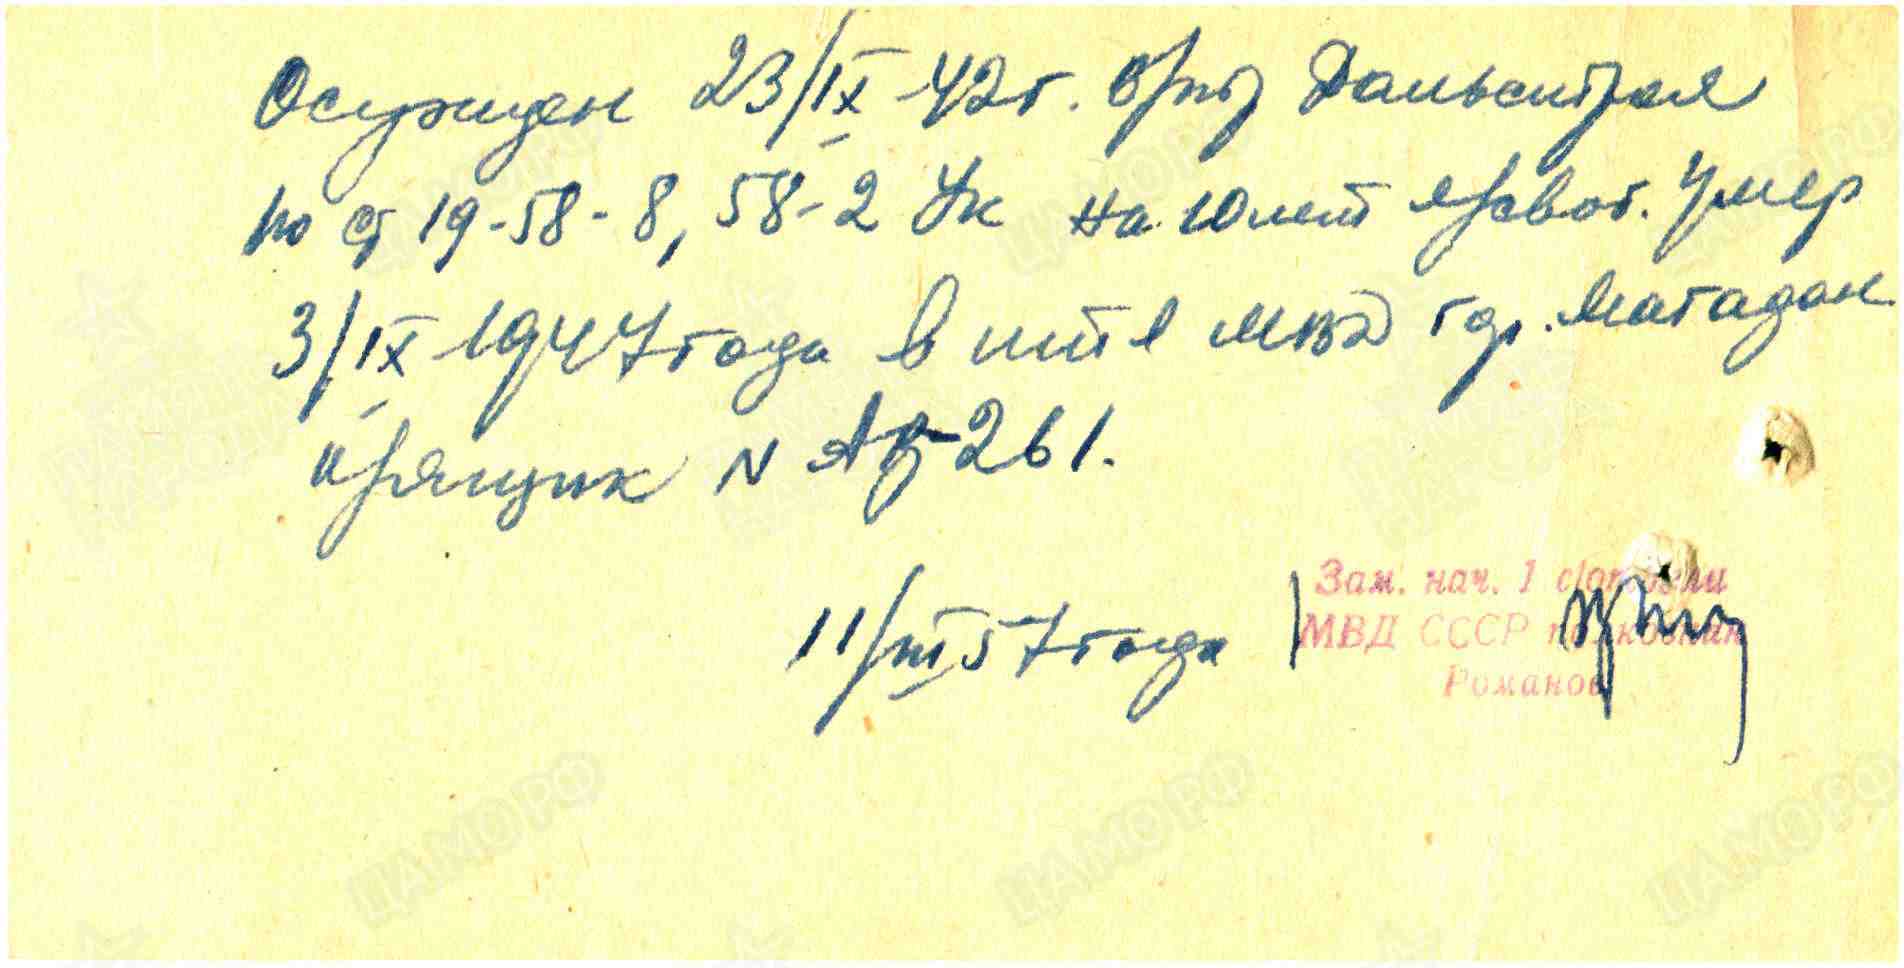 Осужден 23/IX-42г. в/тр Дальстроя
по ст 19-58-8, 58-2 УК на 10 лет л/своб. Умер
3/IX-1947 года в ИТЛ МВД гор. Магадан
а/ящик N АВ-261.
11/III 57 года
Зам. нач. 1 с/отдела
МВД СССР полковник
Романов
ЦАМО РФ